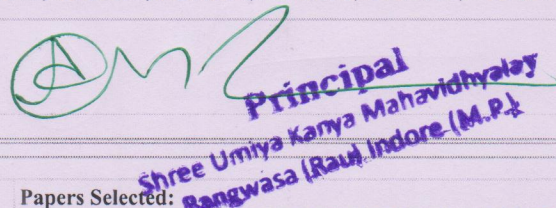 Principal
Shree Umiya Kanya Mahavidhyalay
Rangwasa (Rau) Indore (M.P.)
Papers Selected: